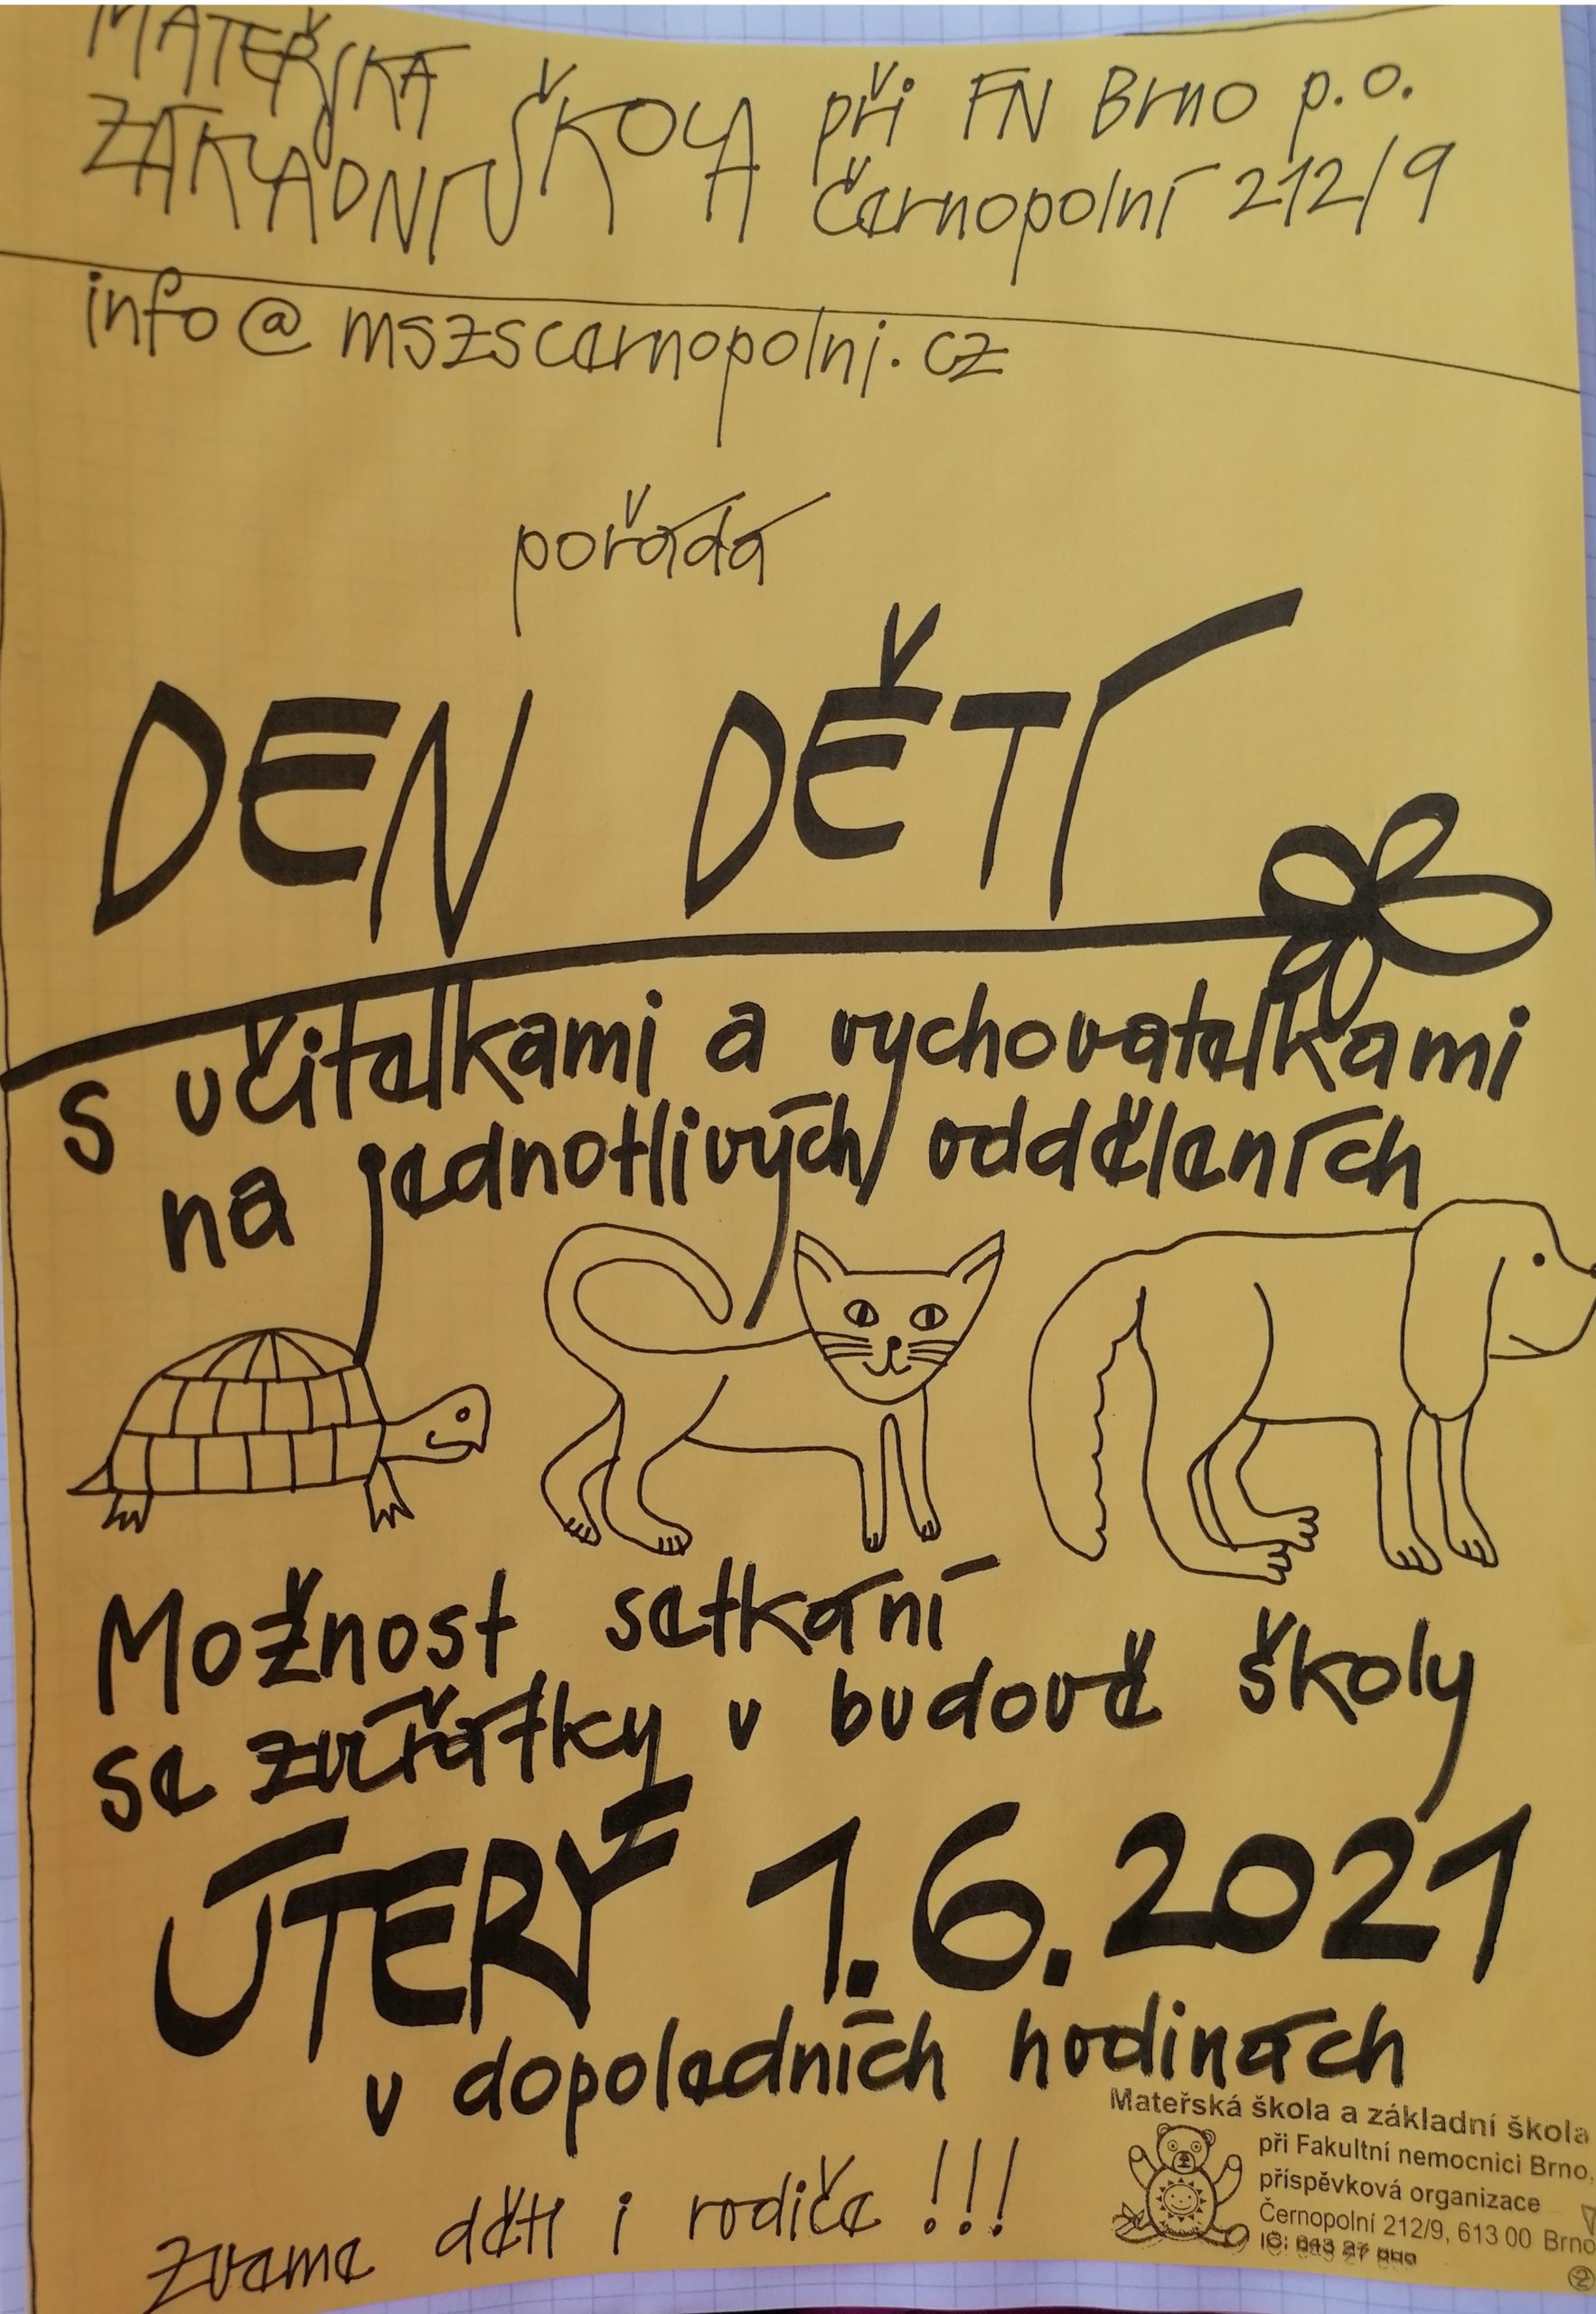 MATEŘSKÁ
ZÁKLADNÍ ŠKOLA při FN Brno p.o.
Černopolní 212/9
info@mszscernopolni.cz
pořádá
DEN DĚTÍ
s učitelkami a vychovatelkami
na jednotlivých odděleních
Možnost setkání
se zvířátky v budově školy
ÚTERÝ 1.6.2021
v dopoledních hodinách
zveme děti i rodiče !!!
Mateřská škola a základní škola
při Fakultní nemocnici Brno,
příspěvková organizace
Černopolní 212/9, 613 00 Brno
IČ:
2